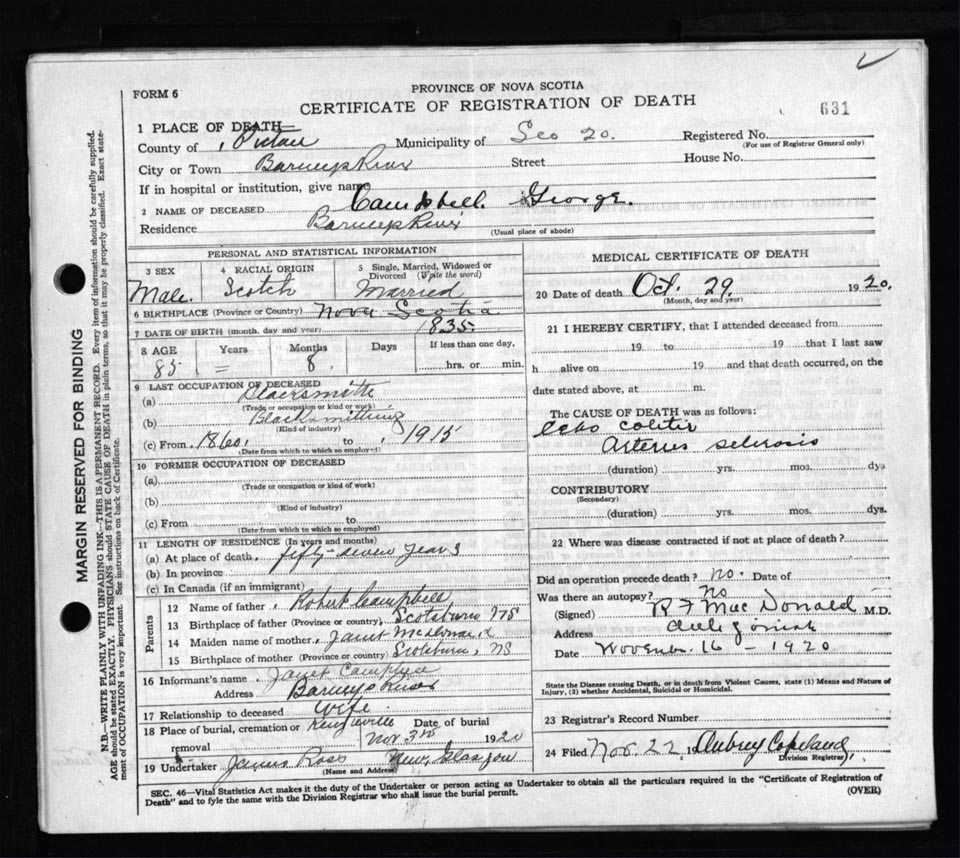 FORM 6
PROVINCE OF NOVA SCOTIA
CERTIFICATE OF REGISTRATION OF DEATH
631
1 PLACE OF DEATH
County of Pictou Municipality of Sec 20. Registered No.
(For use of Registrar General only)
City or Town Barneys River Street House No.
If in hospital or institution, give name
2 NAME OF DECEASED Campbell George.
Residence Barneys River
(Usual place of abode)
PERSONAL AND STATISTICAL INFORMATION
3 SEX 4 RACIAL ORIGIN 5 Single, Married, Widowed or Divorced (Write the word)
Male. Scotch Married
6 BIRTHPLACE (Province or Country) Nova Scotia
7 DATE OF BIRTH (month, day and year) 1835.
8 AGE Years Months Days If less than one day,
85 = 8. hrs. or min.
9 LAST OCCUPATION OF DECEASED
(a) Blacksmith
(Trade or occupation or kind of work)
(b) Blacksmithing
(Kind of industry)
(c) From 1860. to 1915
(Date from which to which so employed)
10 FORMER OCCUPATION OF DECEASED
(a)
(Trade or occupation or kind of work)
(b)
(Kind of industry)
(c) From to
(Date from which to which so employed)
11 LENGTH OF RESIDENCE (In years and months)
(a) At place of death, fifty-seven years
(b) In province
(c) In Canada (if an immigrant)
Parents
12 Name of father Robert Campbell
13 Birthplace of father (Province or country) Scotsburn NS
14 Maiden name of mother Janet
15 Birthplace of mother (Province or country) Scotsburn, NS
16 Informant's name Janet Campbell
Address Barneys River
17 Relationship to deceased wife
18 Place of burial, cremation or removal Date of burial
Nov 3rd 1920
19 Undertaker James Ross New Glasgow
(Name and Address)
MEDICAL CERTIFICATE OF DEATH
20 Date of death Oct. 29 1920.
(Month, day and year)
21 I HEREBY CERTIFY, that I attended deceased from
19 to 19 that I last saw
h alive on 19 and that death occurred, on the
date stated above, at m.
The CAUSE OF DEATH was as follows:
colitis
Arterus sclerosis
(duration) yrs. mos. dys
CONTRIBUTORY
(Secondary)
(duration) yrs. mos. dys.
22 Where was disease contracted if not at place of death?
Did an operation precede death? no. Date of
Was there an autopsy? No
(Signed) R F MacDonald M.D.
Address
Date November 16 - 1920
State the Disease causing Death, or in death from Violent Causes, state (1) Means and Nature of
Injury, (2) whether Accidental, Suicidal or Homicidal.
23 Registrar's Record Number
24 Filed Nov. 22 19 Aubrey Copeland
Division Registrar
SEC. 46—Vital Statistics Act makes it the duty of the Undertaker or person acting as Undertaker to obtain all the particulars required in the "Certificate of Registration of
Death" and to fyle the same with the Division Registrar who shall issue the burial permit.
(OVER)
MARGIN RESERVED FOR BINDING
N.B.—WRITE PLAINLY WITH UNFADING INK—THIS IS A PERMANENT RECORD. Every item of information should be carefully supplied.
AGE should be stated EXACTLY. PHYSICIANS should STATE CAUSE OF DEATH in plain terms, so that it may be properly classified. Exact statement of OCCUPATION is very important. See instructions on back of Certificate.